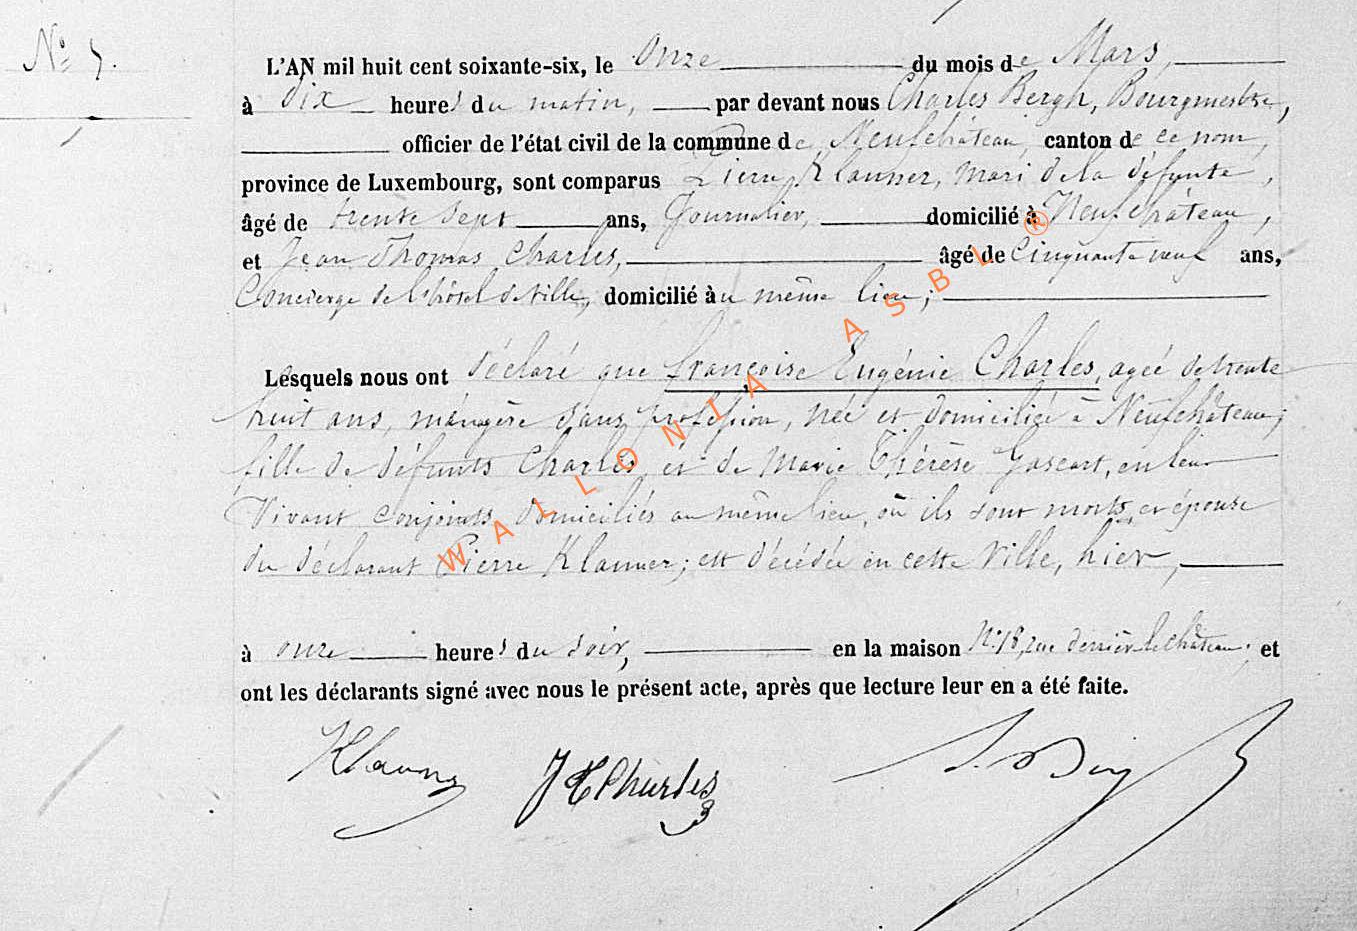 N° 7.
L'AN mil huit cent soixante-six, le onze du mois de Mars,
à dix heures du matin, par devant nous Charles Bergh, Bourgmestre,
officier de l'état civil de la commune de Neufchâteau, canton de ce nom,
province de Luxembourg, sont comparus Pierre Klauner, mari de la défunte,
âgé de trente sept ans, Journalier, domicilié à Neufchâteau,
et Jean Thomas Charles, âgé de Cinquante neuf ans,
Concierge de l'hôtel de Ville, domicilié au même lieu;
Lesquels nous ont déclaré que françoise Eugénie Charles, agée de trente
huit ans, ménagère sans profession, née et domiciliée à Neufchâteau,
fille de défunts Charles et de Marie Thérèse Gascart, en leur
Vivant conjoints domiciliés au même lieu, où ils sont morts, et épouse
du déclarant Pierre Klauner; est décédée en cette Ville, hier,
à onze heures du soir, en la maison N° 18, rue derrière le Château, et
ont les déclarants signé avec nous le présent acte, après que lecture leur en a été faite.
Klauner JTCharles
WALLONIA ASBL ®